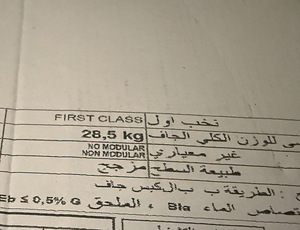 FIRST CLASS نخب اول
28,5 kg للوزن الكلي الجاف
NO MODULAR
NON MODULAR غير معياري
طبيعة السطح مزجج
الطريقة ب بالكبس جاف
الماء BIa ، الملحق Eb ≤ 0,5% G